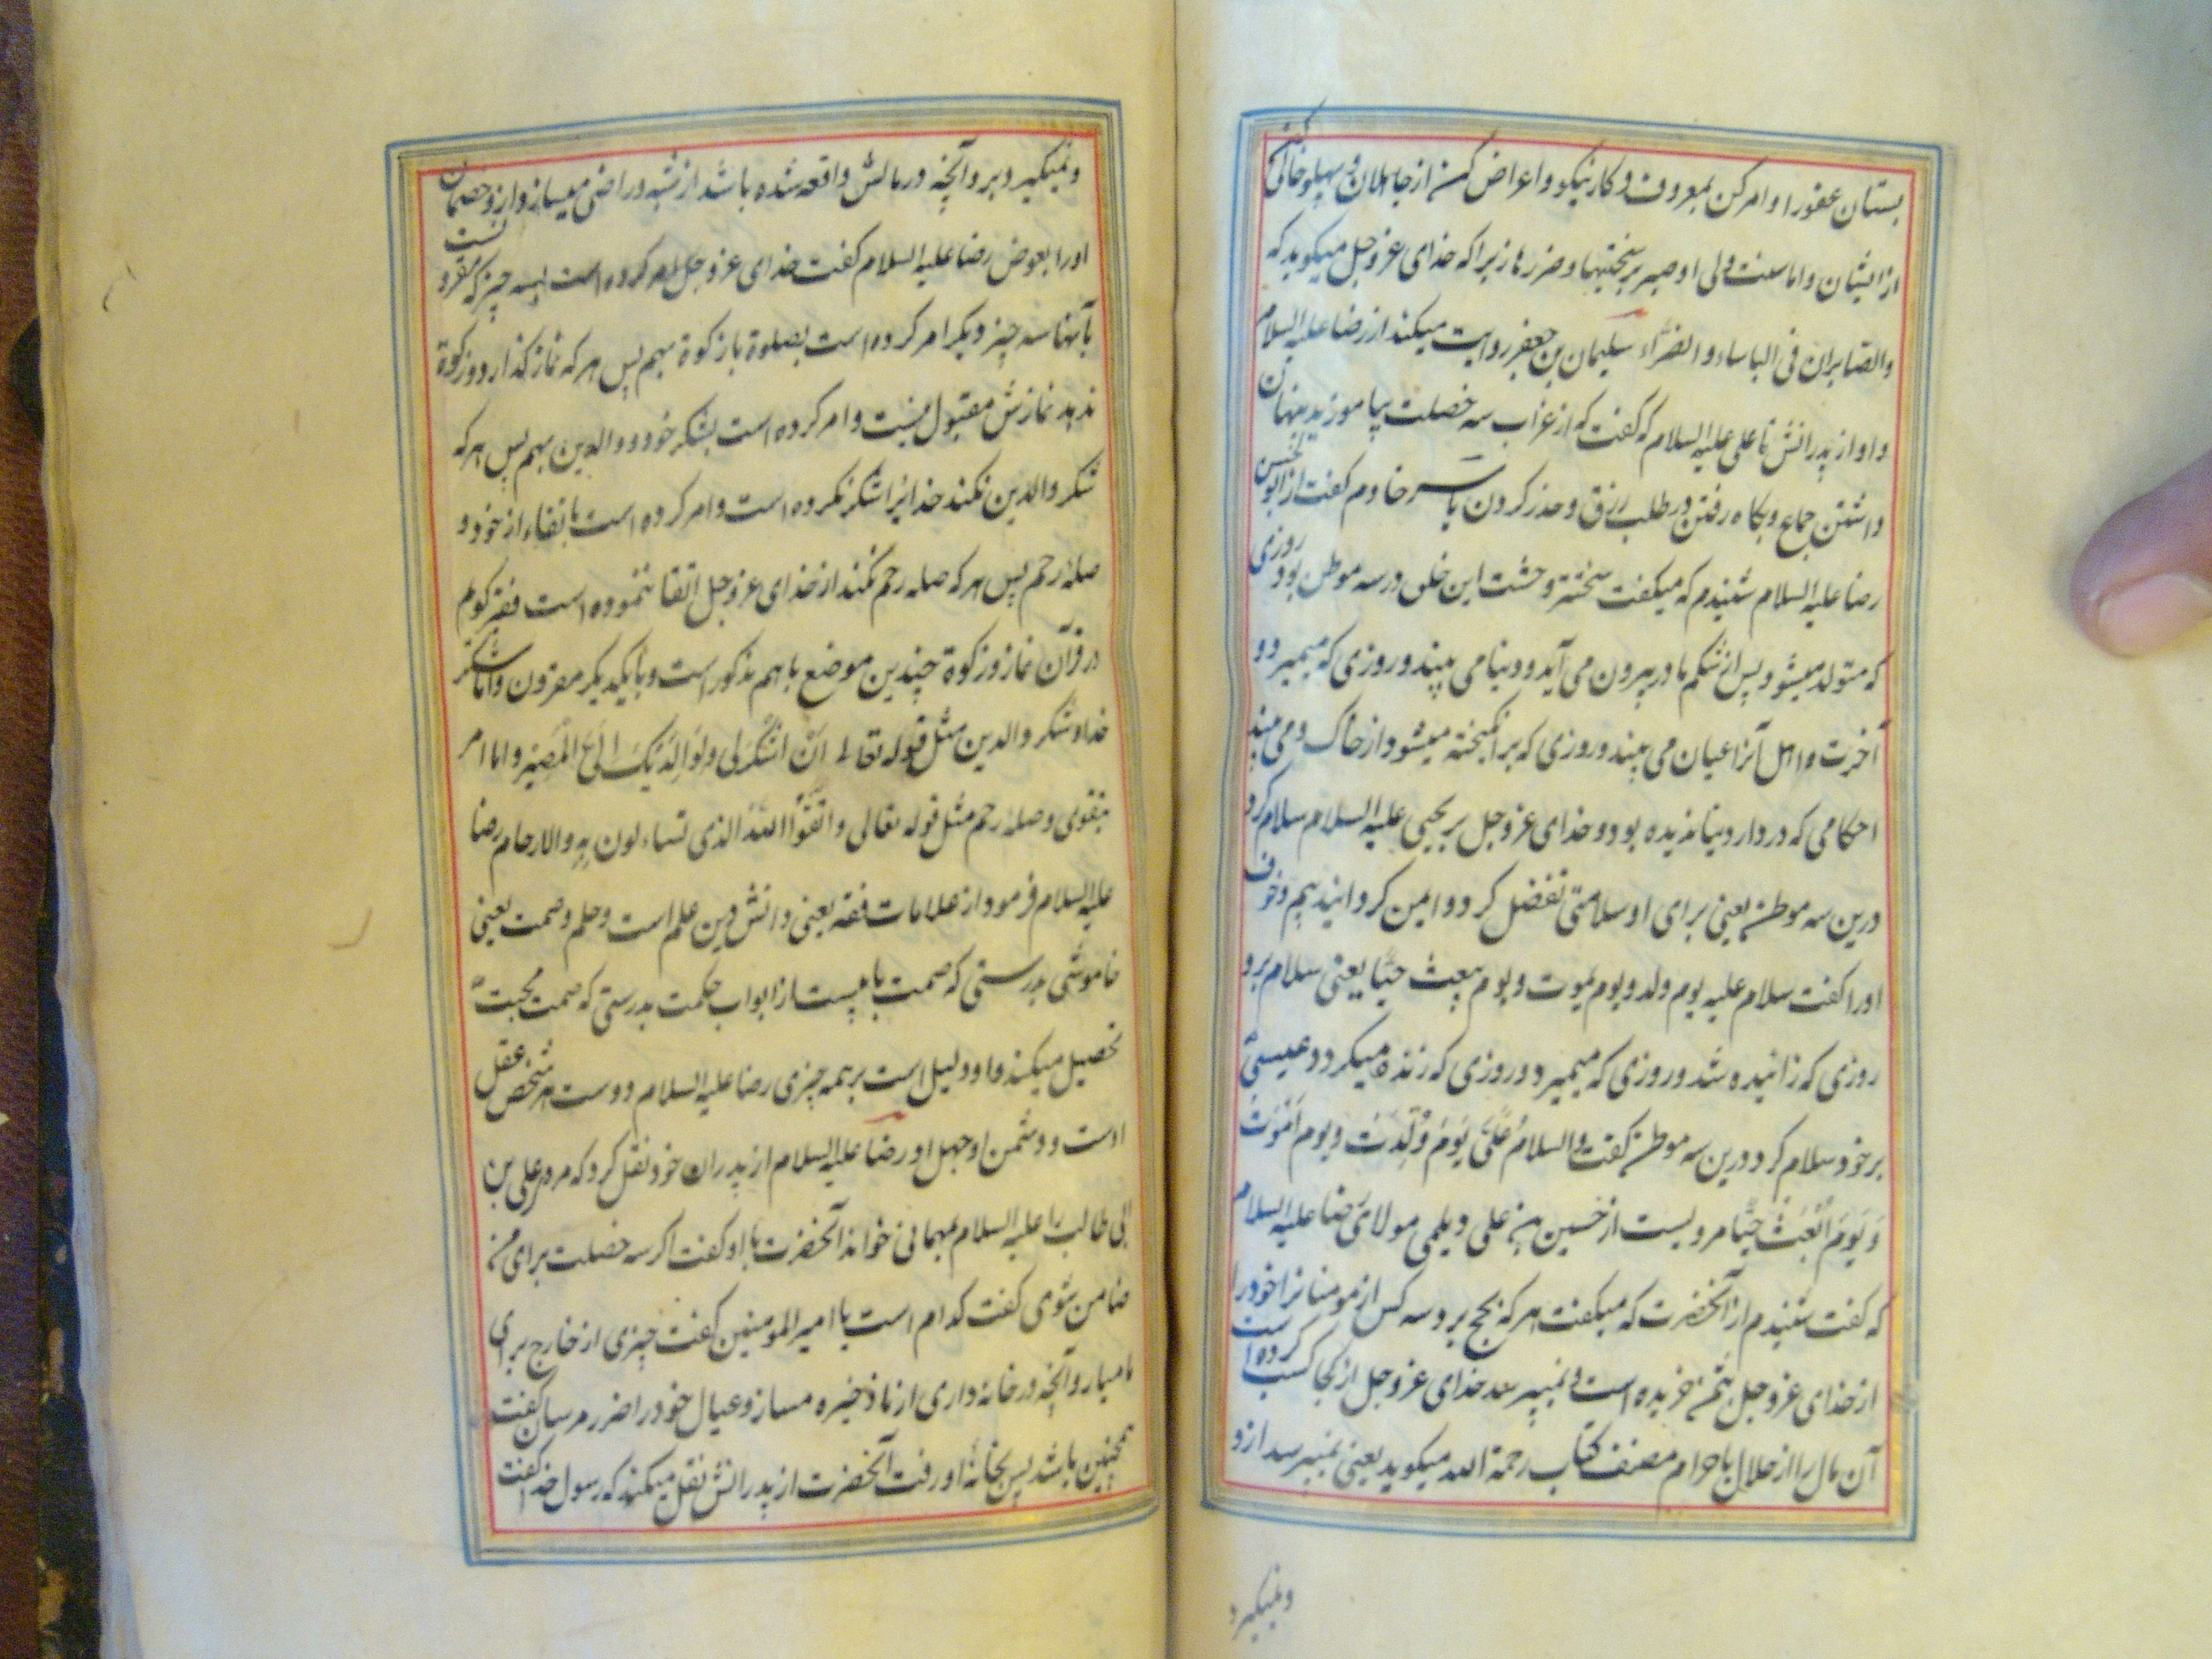 بستان عفورا و امر کن بمعروف و کار نیکو و اعراض کن از جاهلان و پهلو خالی کن
از ایشان و اما سنت ولی او صبر بر سختیها و ضررها زیرا که خدای عز و جل میکوید که
والصابران فی الباساء و الضراء سلیمان بن جعفر روایت میکند از رضا علیه السلام
و او از پدرانش تا علی علیه السلام که کفت که از غراب سه خصلت بیاموزید پنهان
داشتن جماع و بکاه رفتن در طلب رزق و حذر کردن یاسر خادم کفت از ابو الحسن
رضا علیه السلام شنیدم که میکفت سخت‌تر وحشت این خلق در سه موطن بود روزی
که متولد میشود پس از شکم مادر بیرون می آید و دنیا می بیند و روزی که میمیرد و
آخرت و اهل آنرا عیان می بیند و روزی که برانکیخته میشود از خاک و می بیند
احکامی که در دار دنیا ندیده بود و خدای عز و جل بر یحیی علیه السلام سلام کرد
درین سه موطن یعنی برای او سلامتی تفضل کرد و ایمن کردانید بیم و خوف
اورا کفت سلام علیه یوم ولد و یوم یموت و یوم یبعث حیا یعنی سلام برو
روزی که زانیده شد و روزی که میمیرد و روزی که زنده میکردد و عیسی
بر خود سلام کرد درین سه موطن کفت والسلامُ عَلَیَّ یَومَ وُلِدتُ و یوم اَمُوتُ
وَ یَومَ اُبْعَثُ حَیًّا مرویست از حسین بن علی دیلمی مولای رضا علیه السلام
که کفت شنیدم از آنحضرت که میکفت هر که بحج برد سه کس از مومنانرا خود را
از خدای عز و جل بثمن خریده است و نمیپرسد خدای عز و جل از کجا کسب کرده است
آن مال را از حلال یا حرام مصنف کتاب رحمة الله میکوید یعنی نمیپرسد ازو
و نمیکیرد
و نمیکیرد برو آنچه در مالش واقعه شده باشد از شبه و راضی میسازد ازو خصمان
اورا بعوض رضا علیه السلام کفت خدای عز و جل امر کرده است بسه چیز که مقرونست
بآنها سه چیز دیکر امر کرده است بصلوة با زکوة بهم پس هر که نماز کذارد و زکوة
ندهد نمازش مقبول نیست و امر کرده است بشکر خود و والدین بهم پس هر که
شکر والدین نکند خدایرا شکر نکرده است و امر کرده است باتقاء از خود و
صلهٔ رحم پس هر که صله رحم نکند از خدای عز و جل اتقا ننموده است فقیر کوید
در قرآن نماز و زکوة چندین موضع باهم مذکور است و بایکدیکر مقرون و اما شکر
خدا و شکر والدین مثل قوله تعالی اَنْ اشْکُرْ لی وَلِوالِدَیْکَ اِلَیَّ الْمَصیرُ و اما امر
بتقوی و صلهٔ رحم مثل قوله تعالی و اتَّقُوا اللهَ الذی تساءلون بِهِ و الارحام رضا
علیه السلام فرمود از علامات فقه یعنی دانش دین علم است و حلم و صمت یعنی
خاموشی بدرستی که صمت بابیست از ابواب حکمت بدرستی که صمت محبت
تحصیل میکند و او دلیل است بر همه چیزی رضا علیه السلام دوست هر شخص عقل
اوست و دشمن او جهل او رضا علیه السلام از پدران خود نقل کرد که مردی علی بن
ابی طالب را علیه السلام بمهمانی خواند آنحضرت با او کفت اکر سه خصلت برای من
ضامن شوی کفت کدام است یا امیر المومنین کفت چیزی از خارج برای
ما میار و آنچه در خانه داری از ما ذخیره مساز و عیال خود را ضرر مرسان کفت
همچنین باشد پس بخانهٔ او رفت آنحضرت از پدرانش نقل میکند که رسول خدا کفت